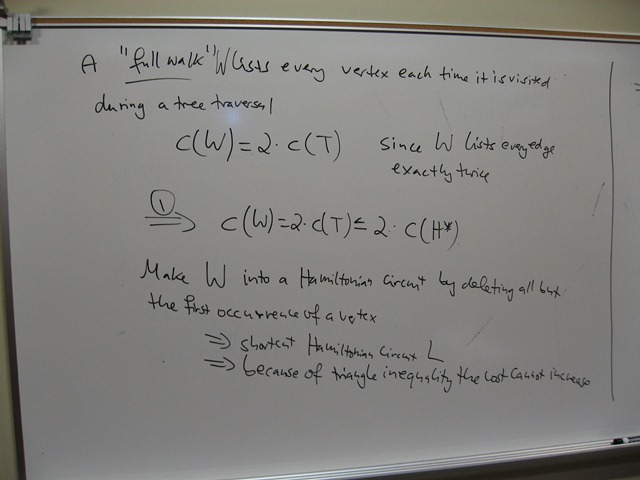 A "full walk" W lists every vertex each time it is visited
during a tree traversal
c(W)=2·c(T) since W lists every edge
exactly twice
① ⇒ c(W)=2·c(T)≤2·c(H*)
Make W into a Hamiltonian Circuit by deleting all but
the first occurrence of a vertex
⇒ shortcut Hamiltonian Circuit L
⇒ because of triangle inequality the cost cannot increase